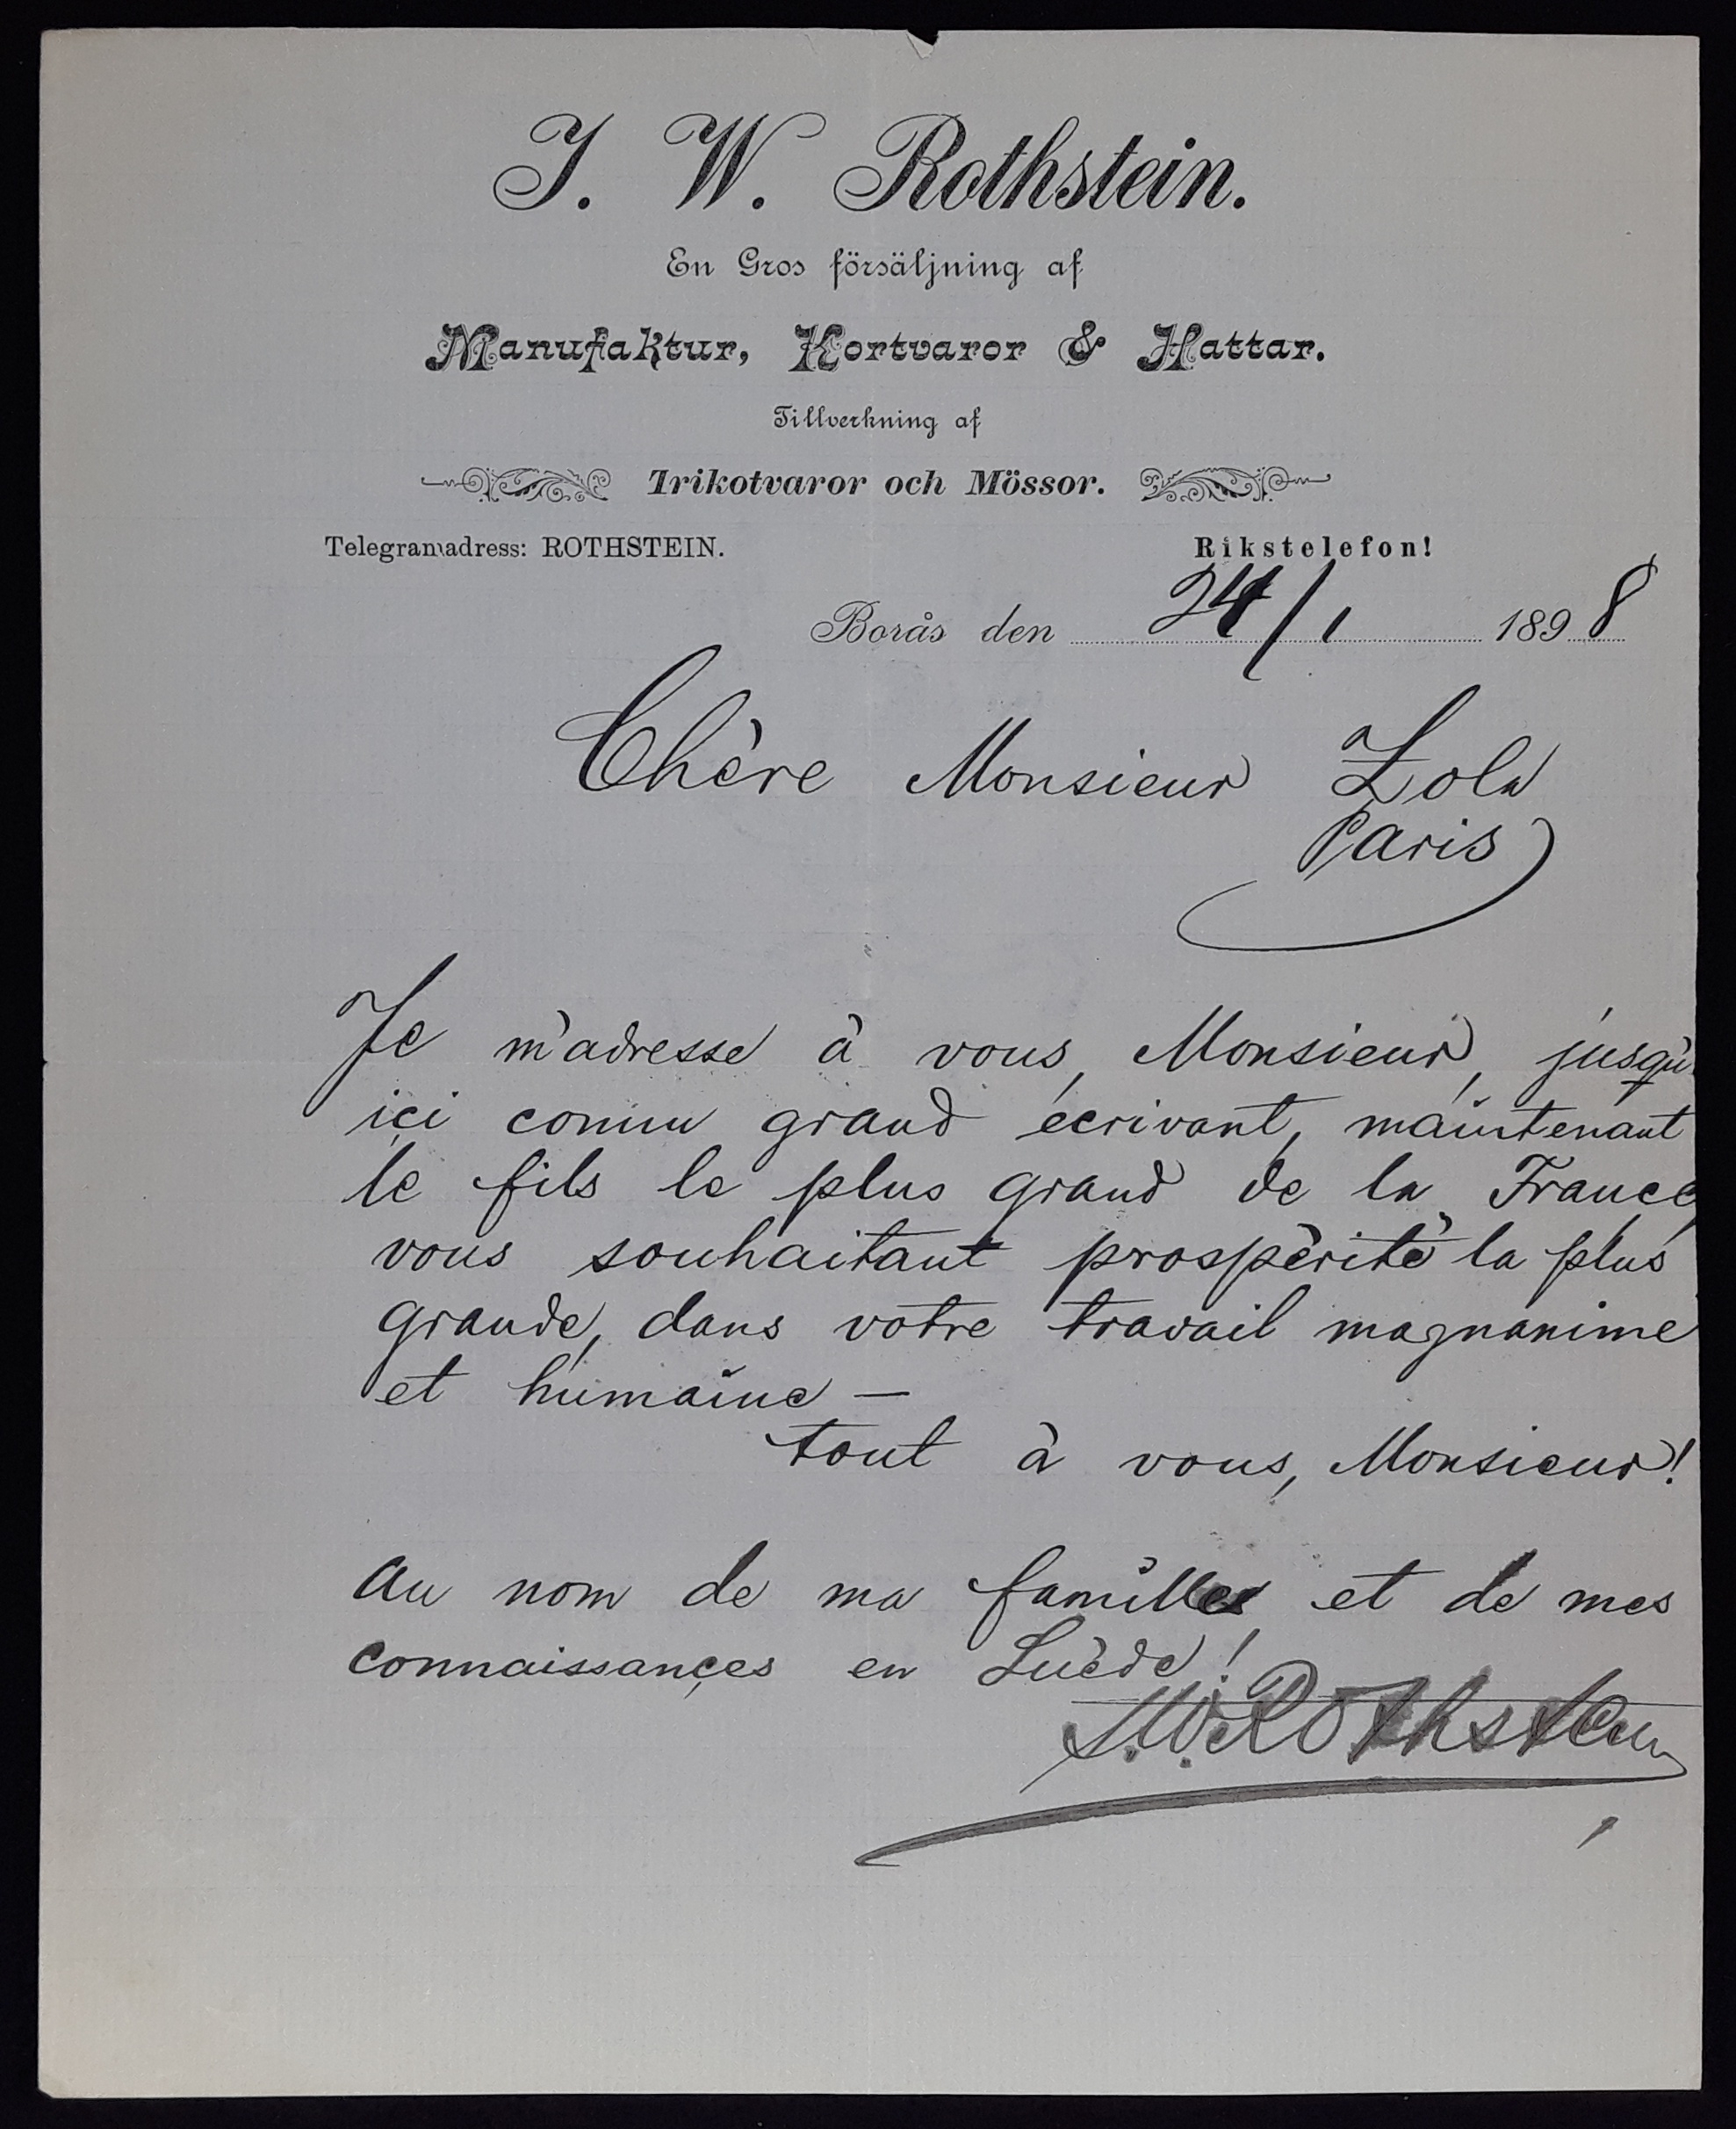 J. W. Rothstein.
En Gros försäljning af
Manufaktur, Kortvaror & Hattar.
Tillverkning af
Trikotvaror och Mössor.
Telegramadress: ROTHSTEIN.
Rikstelefon!
Borås den 24/1 1898
Chère Monsieur Zola
Paris
Je m'adresse à vous, Monsieur, jusqu'
ici connu grand écrivant, maintenant
le fils le plus grand de la France,
vous souhaitant prospèrité la plus
grande, dans votre travail magnanime
et humaine —
tout à vous, Monsieur!
Au nom de ma famille et de mes
connaissançes en Suède!
J.W. Rothstein